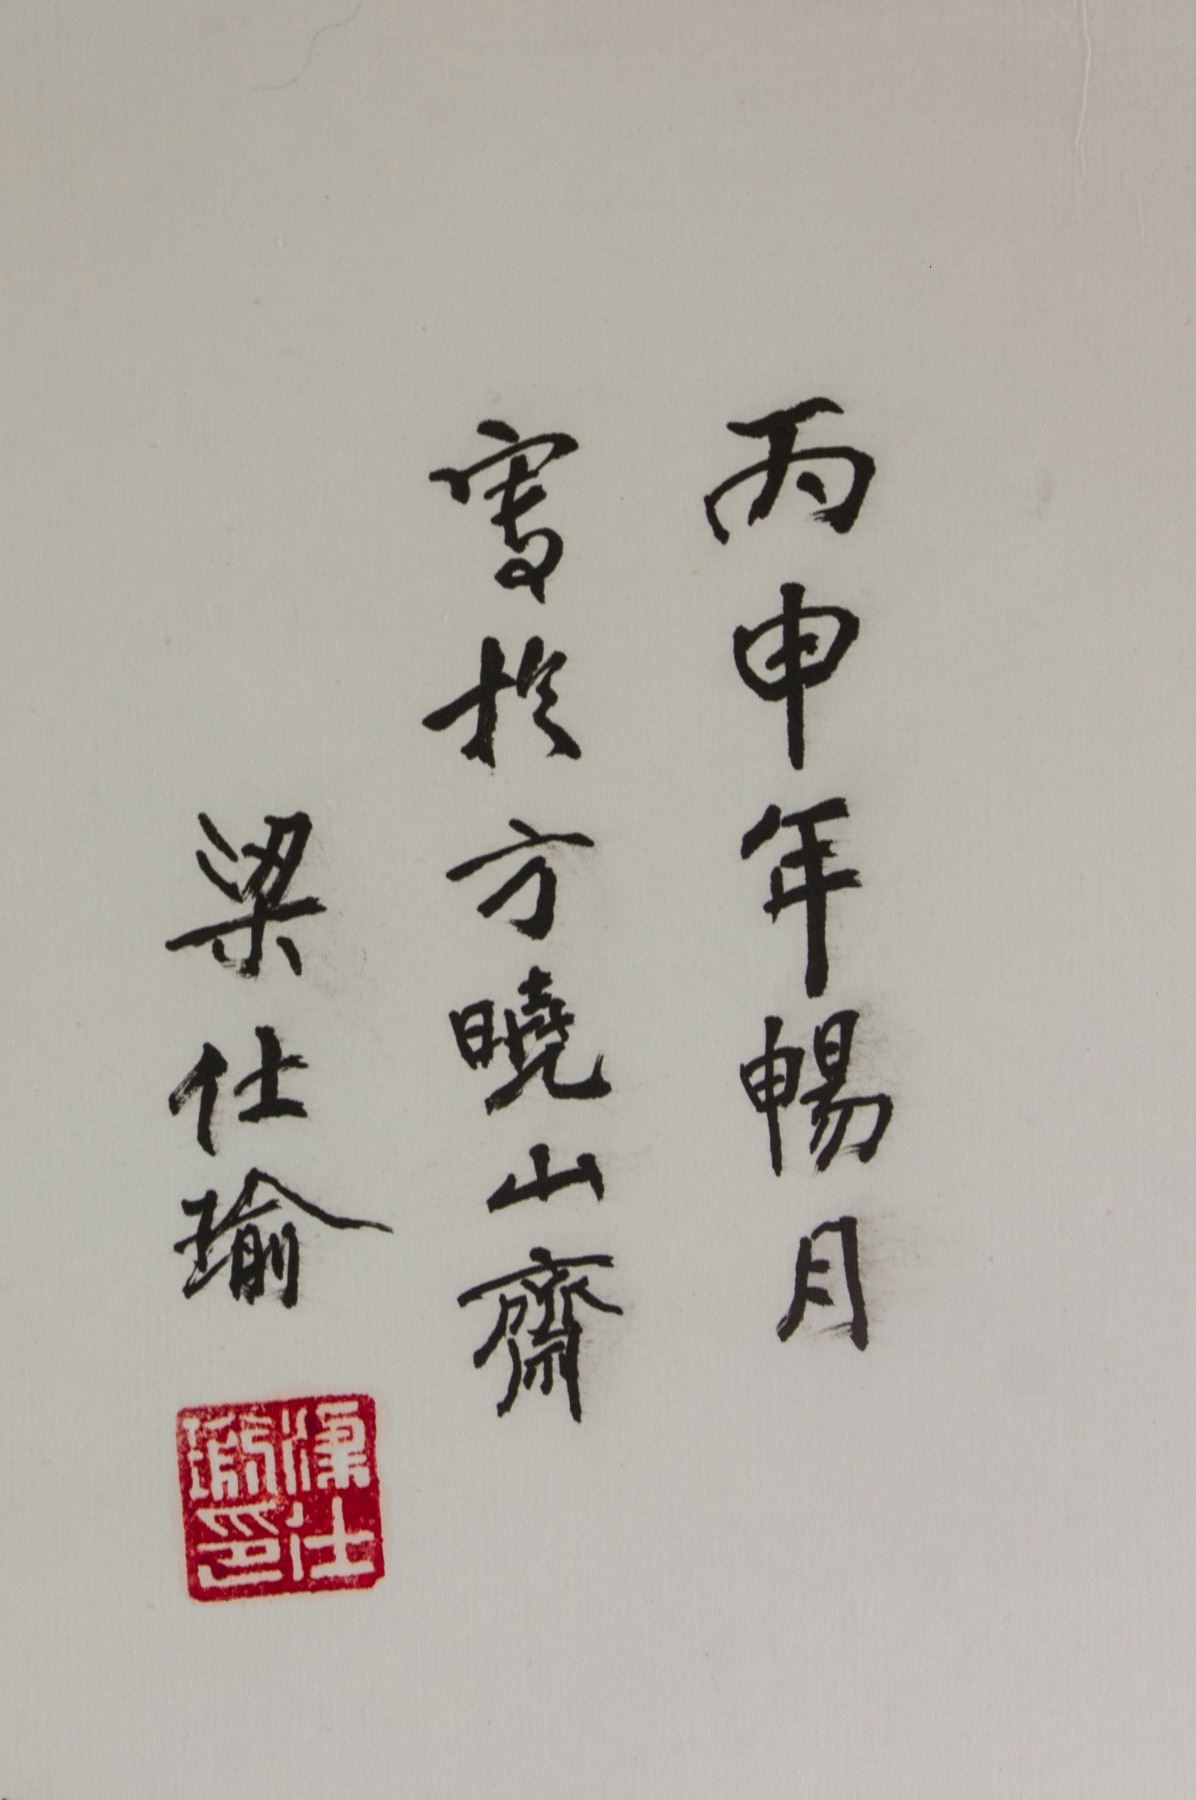 丙申年暢月
寫於方曉山齋
梁仕瑜
梁仕瑜印